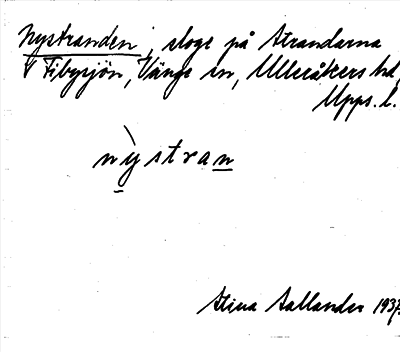 Nystranden, sloge på Strandarna
v Fibysjön, Vänge sn, Ulleråkers hd,
Upps. l.
nỳstran
Stina Sallander 1937